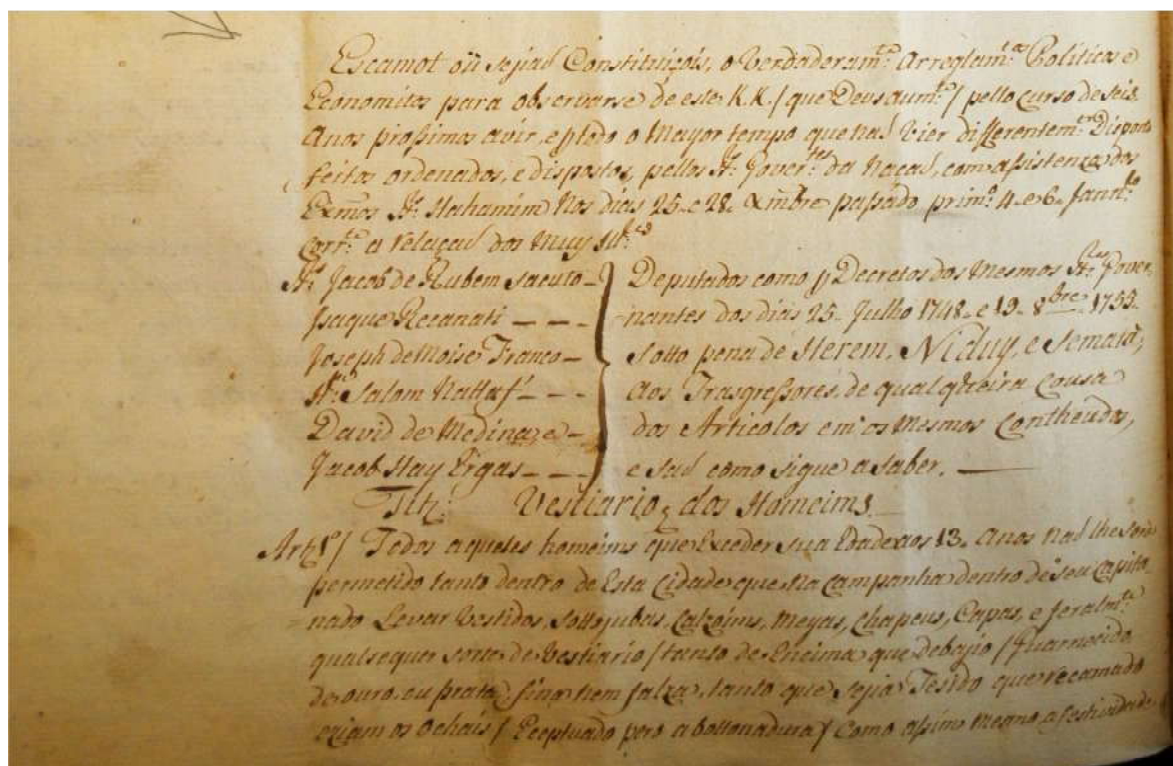 Escamot oü sejaõ Constituiçois, o Verdaderam.te Arreglam.tos Politicos e
Economicos para observarse de este K.K. / que Deus aum.te / pello curso de seis
Anos proßimos avir, e p todo o Mayor tempo que naõ vier differentem.te Disposto
feitos ordenados, e dispostos, pellos SS.res Gover.tes da Naçaõ, com aßistença dos
Exmos SS.res Hahamim Nos dias 25. e 28. Xmbre paßado prim.o 4. e 6. Jann.ro
Corr.te a relaçaõ dos Muy Ill.res
SS.res Jacob de Rubem Sacuto
Isaque Recanati
Joseph de Moise Franco
Salom Nattaf
David de Medina, e
Jacob Hay Ergas
Deputados como p Decretos dos Mesmos SS.res Gover-
nantes dos dias 25. Julho 1748. e 19. 8bre 1755.
sotto pena de Herem, Niduy, e Semata,
aos Trasgreßores de qualqüeira Cousa
dos Articolos em os Mesmos Contheudos,
e saõ como sigue a saber.
Tit.o Vestiario, dos Homeims
Art.o 1.o / Todos aqueles homeims que Exceder sua Edade aos 13. Anos Naõ lhe será
permetido tanto dentro de Esta Cidade que Na Campanha dentro de seu Capita-
nado Levar Vestidos, Sottojubas, Calçoims, Meyas, Chapeus, Capas, e Jeralm.te
qualsequer sorte de Vestiario / tanto de Encima que debajio / Guarnecido
de ouro, ou prata, fino nem falza, tanto que sejia Tesido que recamado
Eceptuado pero a bottonadura / Como aßim Mesmo, a festividade